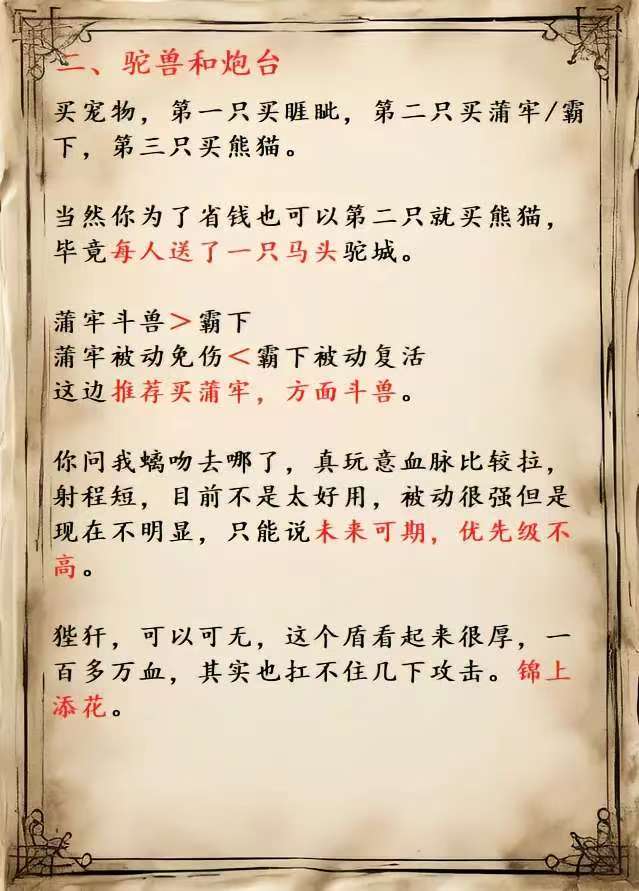 二、驼兽和炮台
买宠物，第一只买睚眦，第二只买蒲牢/霸
下，第三只买熊猫。
当然你为了省钱也可以第二只就买熊猫，
毕竟每人送了一只马头驼城。
蒲牢斗兽＞霸下
蒲牢被动免伤＜霸下被动复活
这边推荐买蒲牢，方面斗兽。
你问我螭吻去哪了，真玩意血脉比较拉，
射程短，目前不是太好用，被动很强但是
现在不明显，只能说未来可期，优先级不
高。
狴犴，可以可无，这个盾看起来很厚，一
百多万血，其实也扛不住几下攻击。锦上
添花。